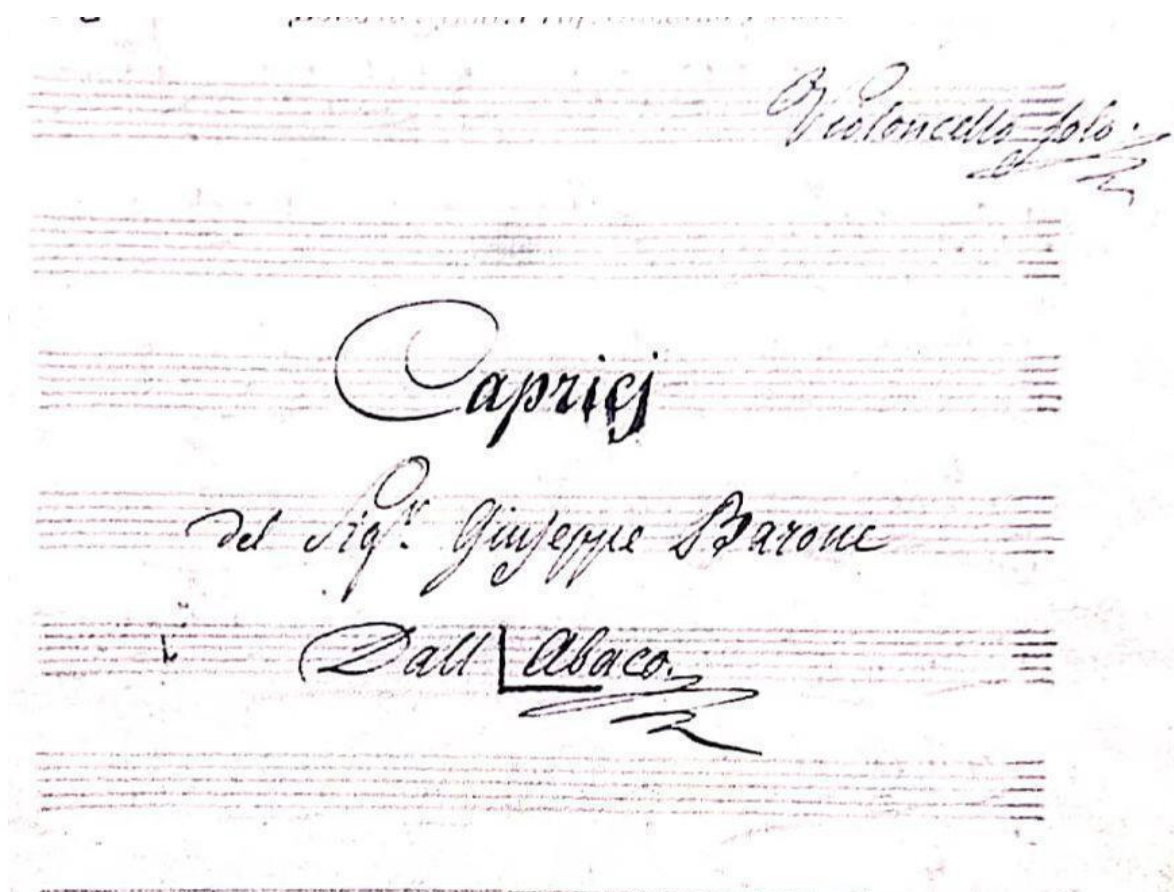 Violoncello solo.
Capricj
del Sigr. Giuseppe Barone
Dall Abaco.